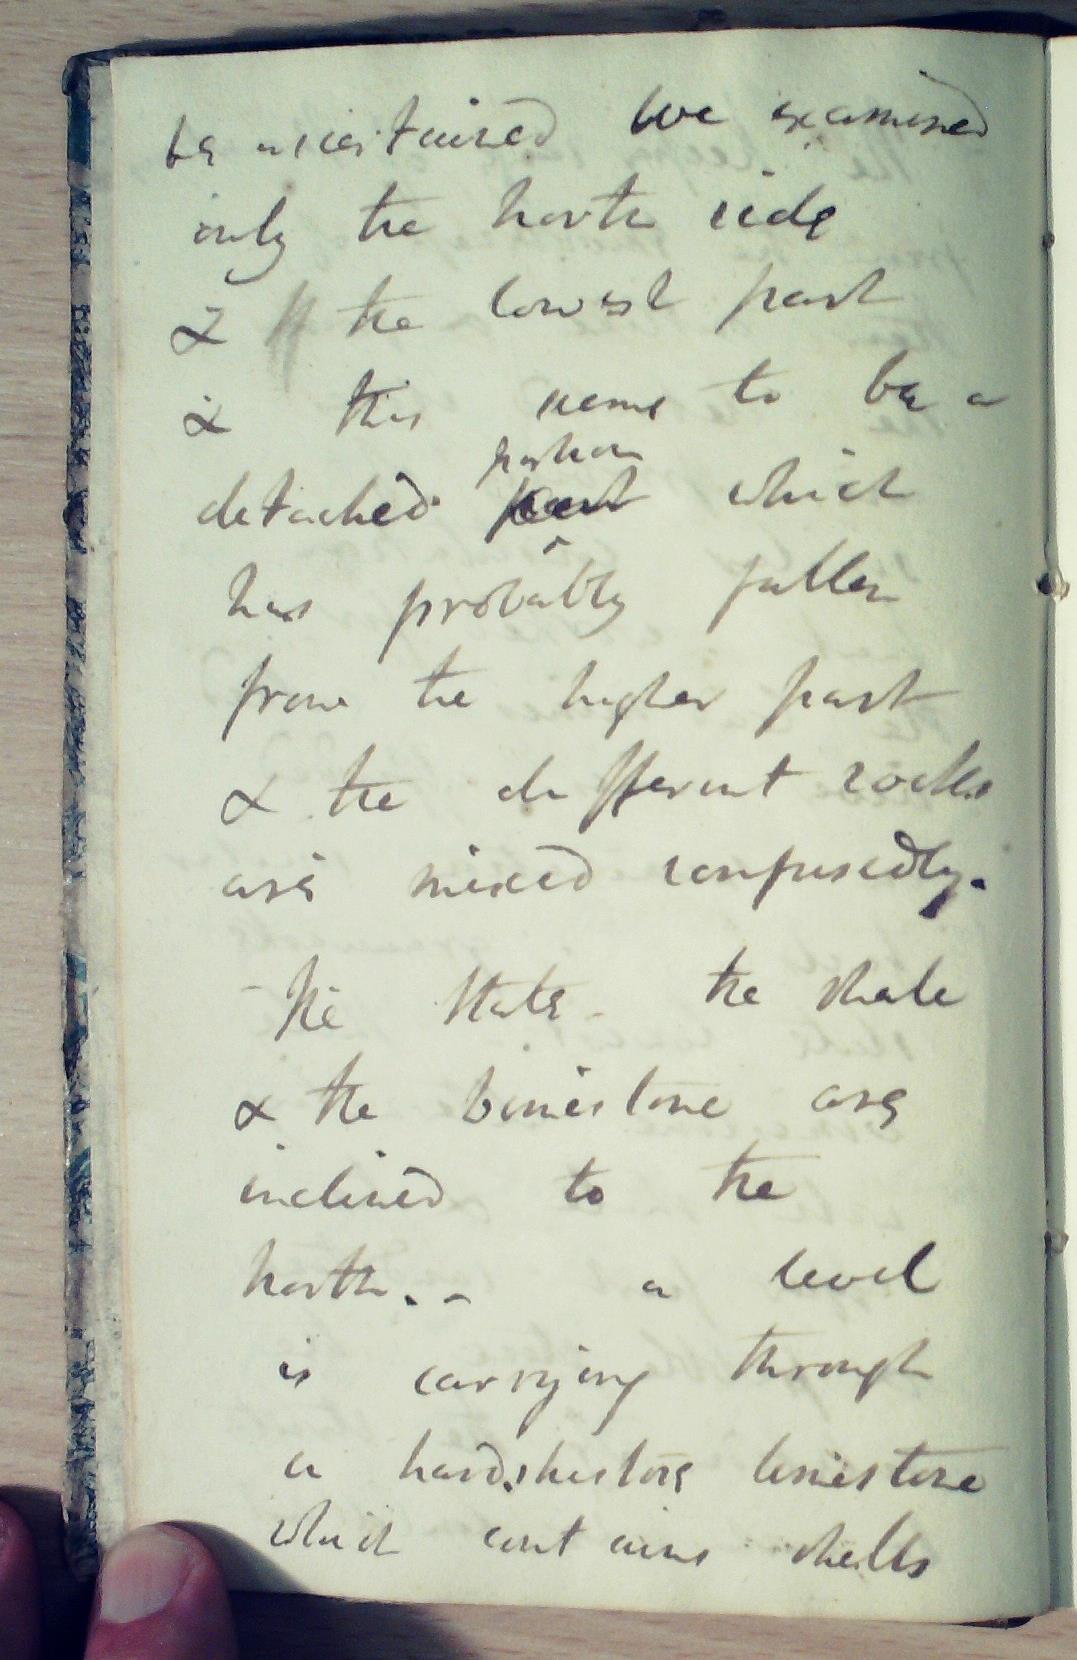 be ascertained We examined
only the north side
& the lowest part
& this seems to be a
portion
detached part which
has probably fallen
from the higher part
& the different rocks
are mixed confusedly.
- The slate - the shale
& the limestone are
inclined to the
north. - a level
is carrying through
a hard limestone
which contains shells